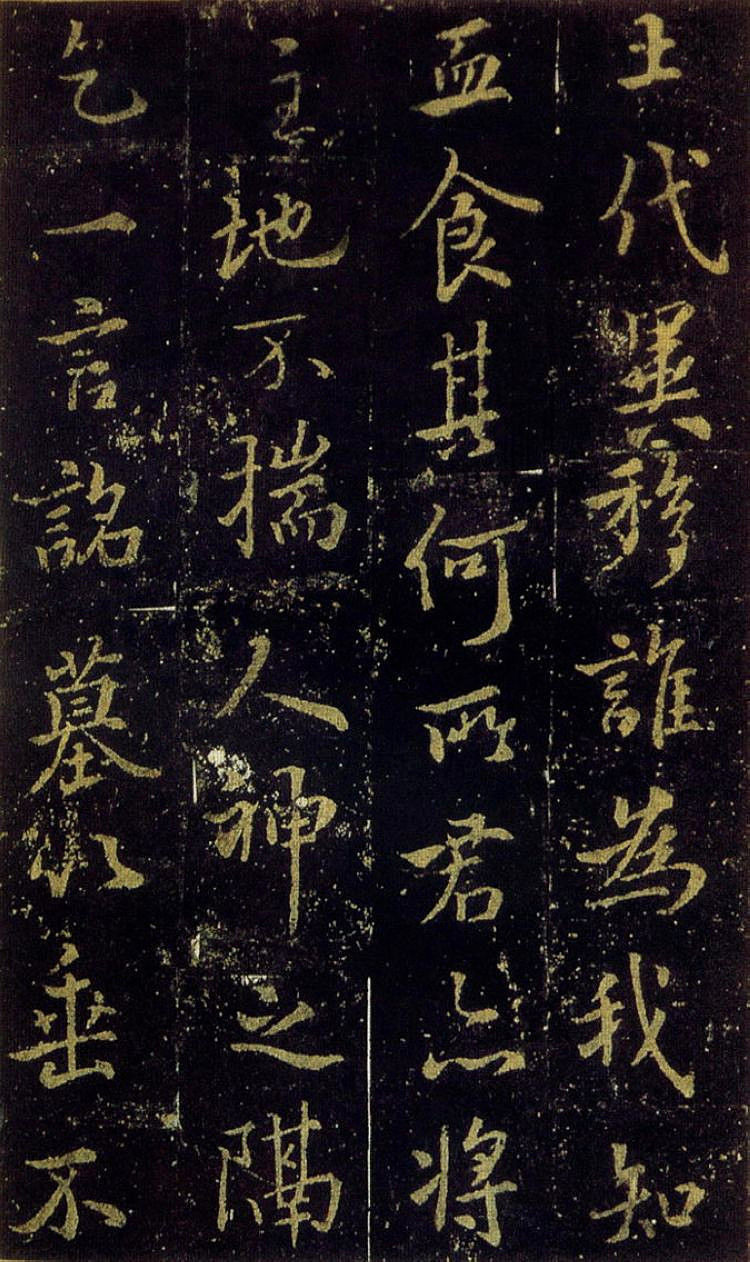 代異移誰為我知
血食其何所君亦將
主地不揣人神之隔
乞一言詺墓以垂不